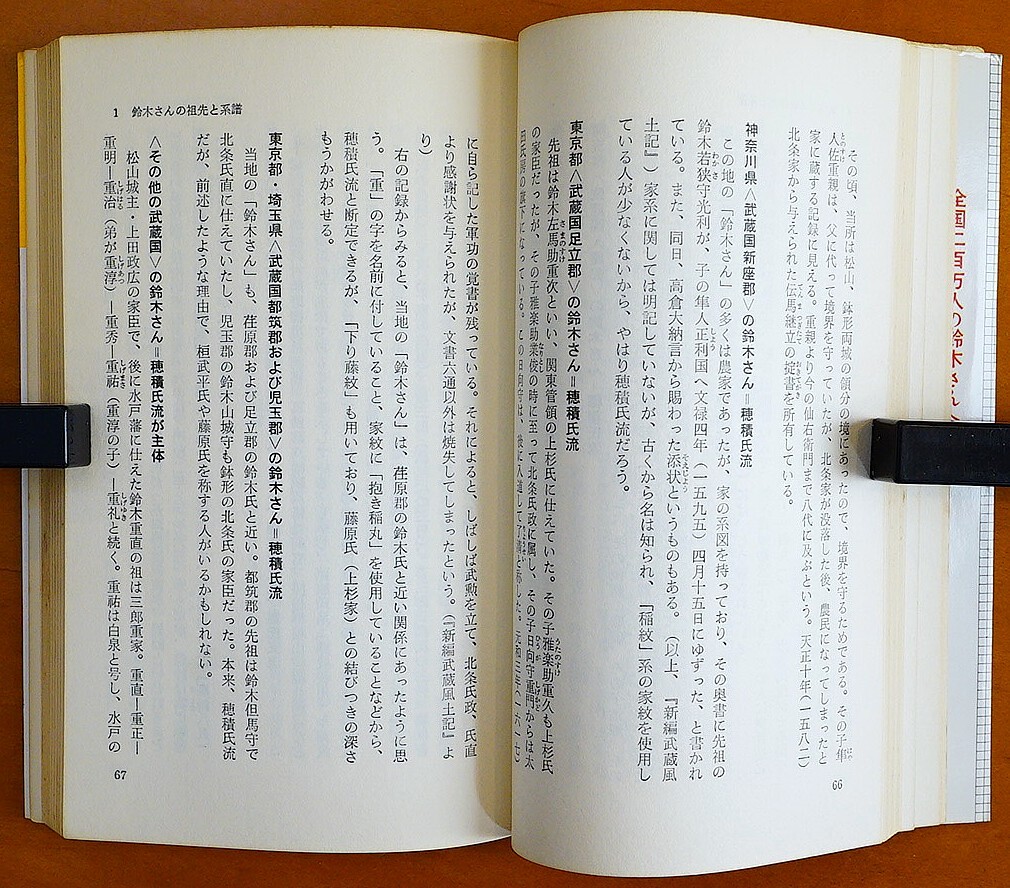 その頃、当所は松山、鉢形両城の領分の境にあったので、境界を守るためである。その子隼
人佐重親は、父に代って境界を守っていたが、北条家が没落した後、農民になってしまったと
家に蔵する記録に見える。重親より今の仙右衛門まで八代に及ぶという。天正十年(一五八二)
北条家から与えられた伝馬継立の掟書を所有している。
神奈川県〈武蔵国新座郡〉の鈴木さん=穂積氏流
この地の「鈴木さん」の多くは農家であったが、家の系図を持っており、その奥書に先祖の
鈴木若狭守光利が、子の隼人正利国へ文禄四年(一五九五)四月十五日にゆずった、と書かれ
ている。また、同日、高倉大納言から賜わった添状というものもある。(以上、『新編武蔵風
土記』)家系に関しては明記していないが、古くから名は知られ、「稲紋」系の家紋を使用し
ている人が少なくないから、やはり穂積氏流だろう。
東京都〈武蔵国足立郡〉の鈴木さん=穂積氏流
先祖は鈴木左馬助重次といい、関東管領の上杉氏に仕えていた。その子雅楽助重久も上杉氏
の家臣だったが、その子雅楽助業俊の時に至って北条氏政に属し、その子日向守重門からは太
田氏房の旗下になっている。この日向守は、後に入道して了
66
1 鈴木さんの祖先と系譜
に自ら記した軍功の覚書が残っている。それによると、しばしば武勲を立て、北条氏政、氏直
より感謝状を与えられたが、文書六通以外は焼失してしまったという。(『新編武蔵風土記』よ
り)
右の記録からみると、当地の「鈴木さん」は、荏原郡の鈴木氏と近い関係にあったように思
う。「重」の字を名前に付していること、家紋に「抱き稲丸」を使用していることなどから、
穂積氏流と断定できるが、「下り藤紋」も用いており、藤原氏(上杉家)との結びつきの深さ
もうかがわせる。
東京都・埼玉県〈武蔵国都筑郡および児玉郡〉の鈴木さん=穂積氏流
当地の「鈴木さん」も、荏原郡および足立郡の鈴木氏と近い。都筑郡の先祖は鈴木但馬守で
北条氏直に仕えていたし、児玉郡の鈴木山城守も鉢形の北条氏の家臣だった。本来、穂積氏流
だが、前述したような理由で、桓武平氏や藤原氏を称する人がいるかもしれない。
〈その他の武蔵国〉の鈴木さん=穂積氏流が主体
松山城主・上田政広の家臣で、後に水戸藩に仕えた鈴木重直の祖は三郎重家。重直―重正―
重明―重治(弟が重淳)―重秀―重祐(重淳の子)―重礼と続く。重祐は白泉と号し、水戸の
67
全国二百万人の鈴木さん